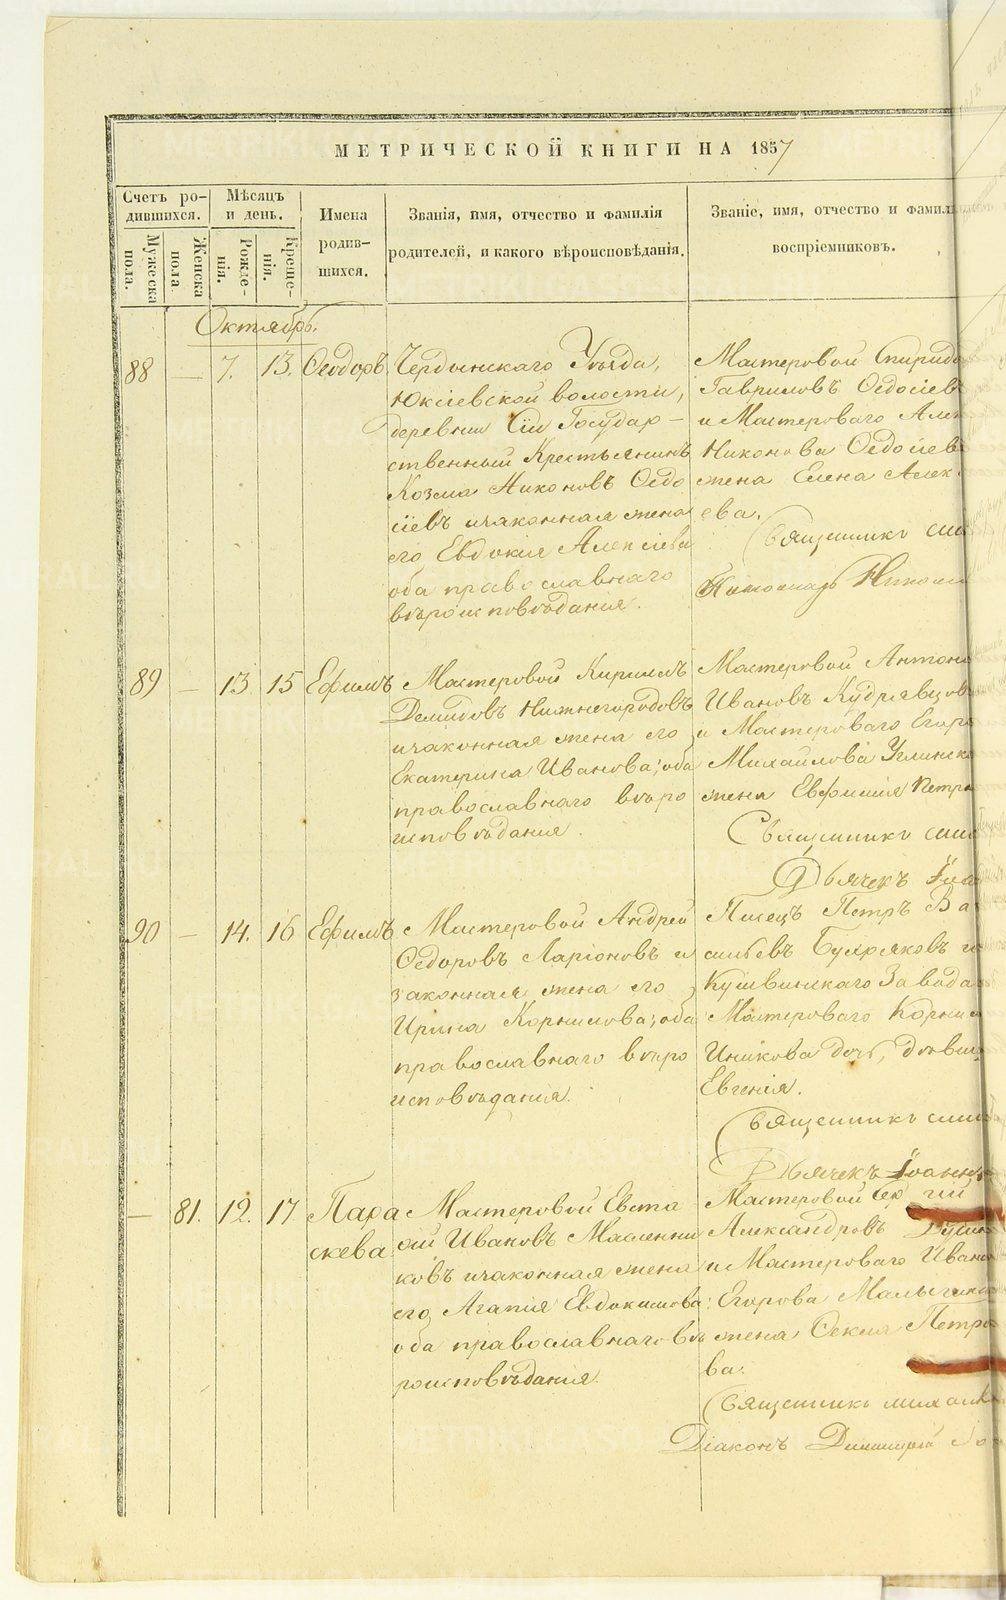 МЕТРИЧЕСКОЙ КНИГИ НА 1857
Счетъ ро-
дившихся.
Мужеска
пола.
Женска
пола
Мѣсяцъ
и день.
Рожде-
нія.
Креще-
нія.
Имена
родив-
шихся.
Званія, имя, отчество и фамилія
родителей, и какого вѣроисповѣданія.
Званіе, имя, отчество и фамил
воспріемниковъ.
Октябрь.
88 — 7. 13. Ѳеодоръ
Чердынскаго Уѣзда,
Юксіевской волости,
деревни Сіи Государ-
ственный Крестьянинъ
Козма Никоновъ Ѳедо
сіевъ и законная жена
его Евдокія Алексіева
оба православнаго
вѣроисповѣданія.
Мастеровой Спиридо
Гавриловъ Ѳедосіев
и Мастероваго Алек
Никонова Ѳедосіев
жена Елена Алек
ева.
Священникъ
Пономарь Никол
89 — 13 15 Ефимъ
Мастеровой Кириллъ
Демидовъ Нижнегородовъ
и законная жена его
Екатерина Иванова; оба
православнаго вѣро
исповѣданія.
Мастеровой Антон
Ивановъ Кудрявцов
и Мастероваго Егор
Михайлова Углинск
жена Евфимія Петр
Священникъ
Дьячекъ Іоа
90 — 14. 16 Ефимъ
Мастеровой Андрей
Ѳедоровъ Ларіоновъ и
законная жена его
Ирина Корнилова; оба
православнаго вѣро
исповѣданія.
Писецъ Петръ Ва
сильевъ Буяряковъ и
Кушвинскаго Завода
Мастероваго Корни
Иникова дочь, дѣви
Евгенія.
Священникъ
Дьячекъ Іоанн
— 81. 12. 17 Пара
скева
Мастеровой Евста
ѳій Ивановъ Масленни
ковъ и законная жена
его Агапія Евдокимова;
оба православнаго вѣ
роисповѣданія.
Мастеровой Сергій
Александровъ
и Мастероваго Иван
Егорова Малыгин
жена Ѳекла Петро
ва.
Священникъ Михаил
Діаконъ Димитрій